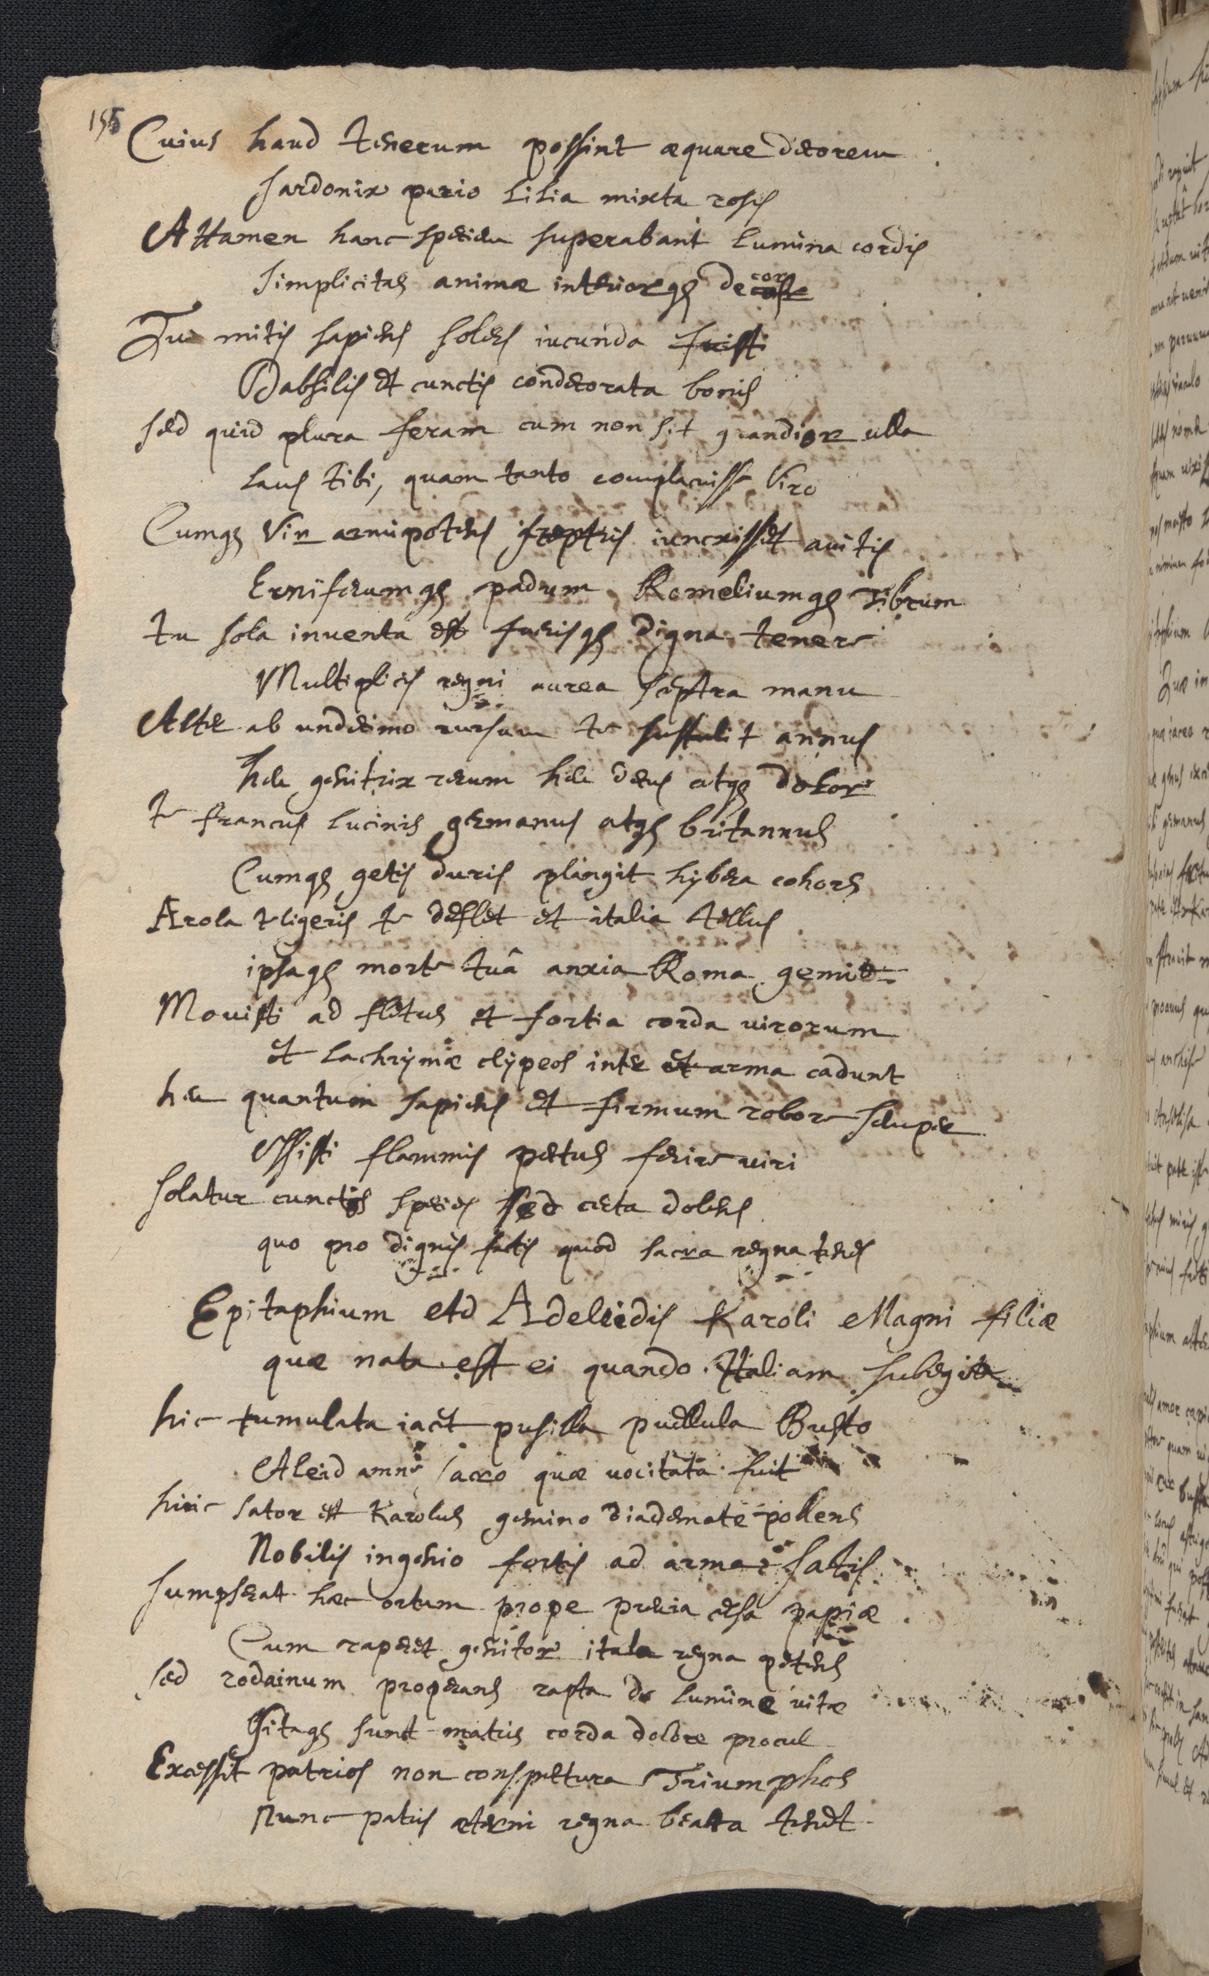 156
Cuius haud tenerum possint æquare decorem
sardonix pario lilia mixta rosis
Attamen hanc speciem superabant lumina cordis
simplicitas animæ interiorq3 decor
Tu mitis sapiens solers iucunda fuisti
Dabsilis et cunctis condecorata bonis
sed quid plura feram cum non sit grandior ulla
laus tibi, quam tanto complacuisse Viro
Cumq3 Vir armipotens sceptris iuncxisset auitis
Erniferumq3 padum Romeliumq3 Tibrum
tu sola inuenta est fuerisq3 digna tenere
Multiplicis regni aurea sceptra manu
Alter ab undecimo rursum te sustulit annus
heu genitrix rerum heu decus atq3 dolor
te francus lucinis germanus atq3 britannus
Cumq3 getis duris plangit hybera cohors
Ærola ligeris te deflet et itala tellus
ipsaq3 morte tuâ anxia Roma gemit
Mouisti ad fletus et fortia corda uirorum
et lachrymæ clypeos inter et arma cadunt
heu quantum sapiens et firmum robore semper
Ussisti flammis pectus ferire uiri
solatur cunctos species sed certa dolens
quo pro dignis factis quod sacra regna tenes
Epitaphium Ad Adeleidis Karoli Magni filiæ
quæ nata est ei quando Italiam subegit
hic tumulata iacet pusilla puellula Busto
Aleid amne sacro quæ uocitata fuit
huic sator est Karolus gemino diademate pollens
Nobilis ingenio fortis ad arma satis
sumpserat hæc ortum prope mœnia celsa papiæ
Cum caperet genitor itala regna potens
sed rodainum properans rapta de lumine uitæ
Ictaq3 sunt matris corda dolore procul
Excessit patrios non conspectura Triumphos
Nunc patris æterni regna beata tenet